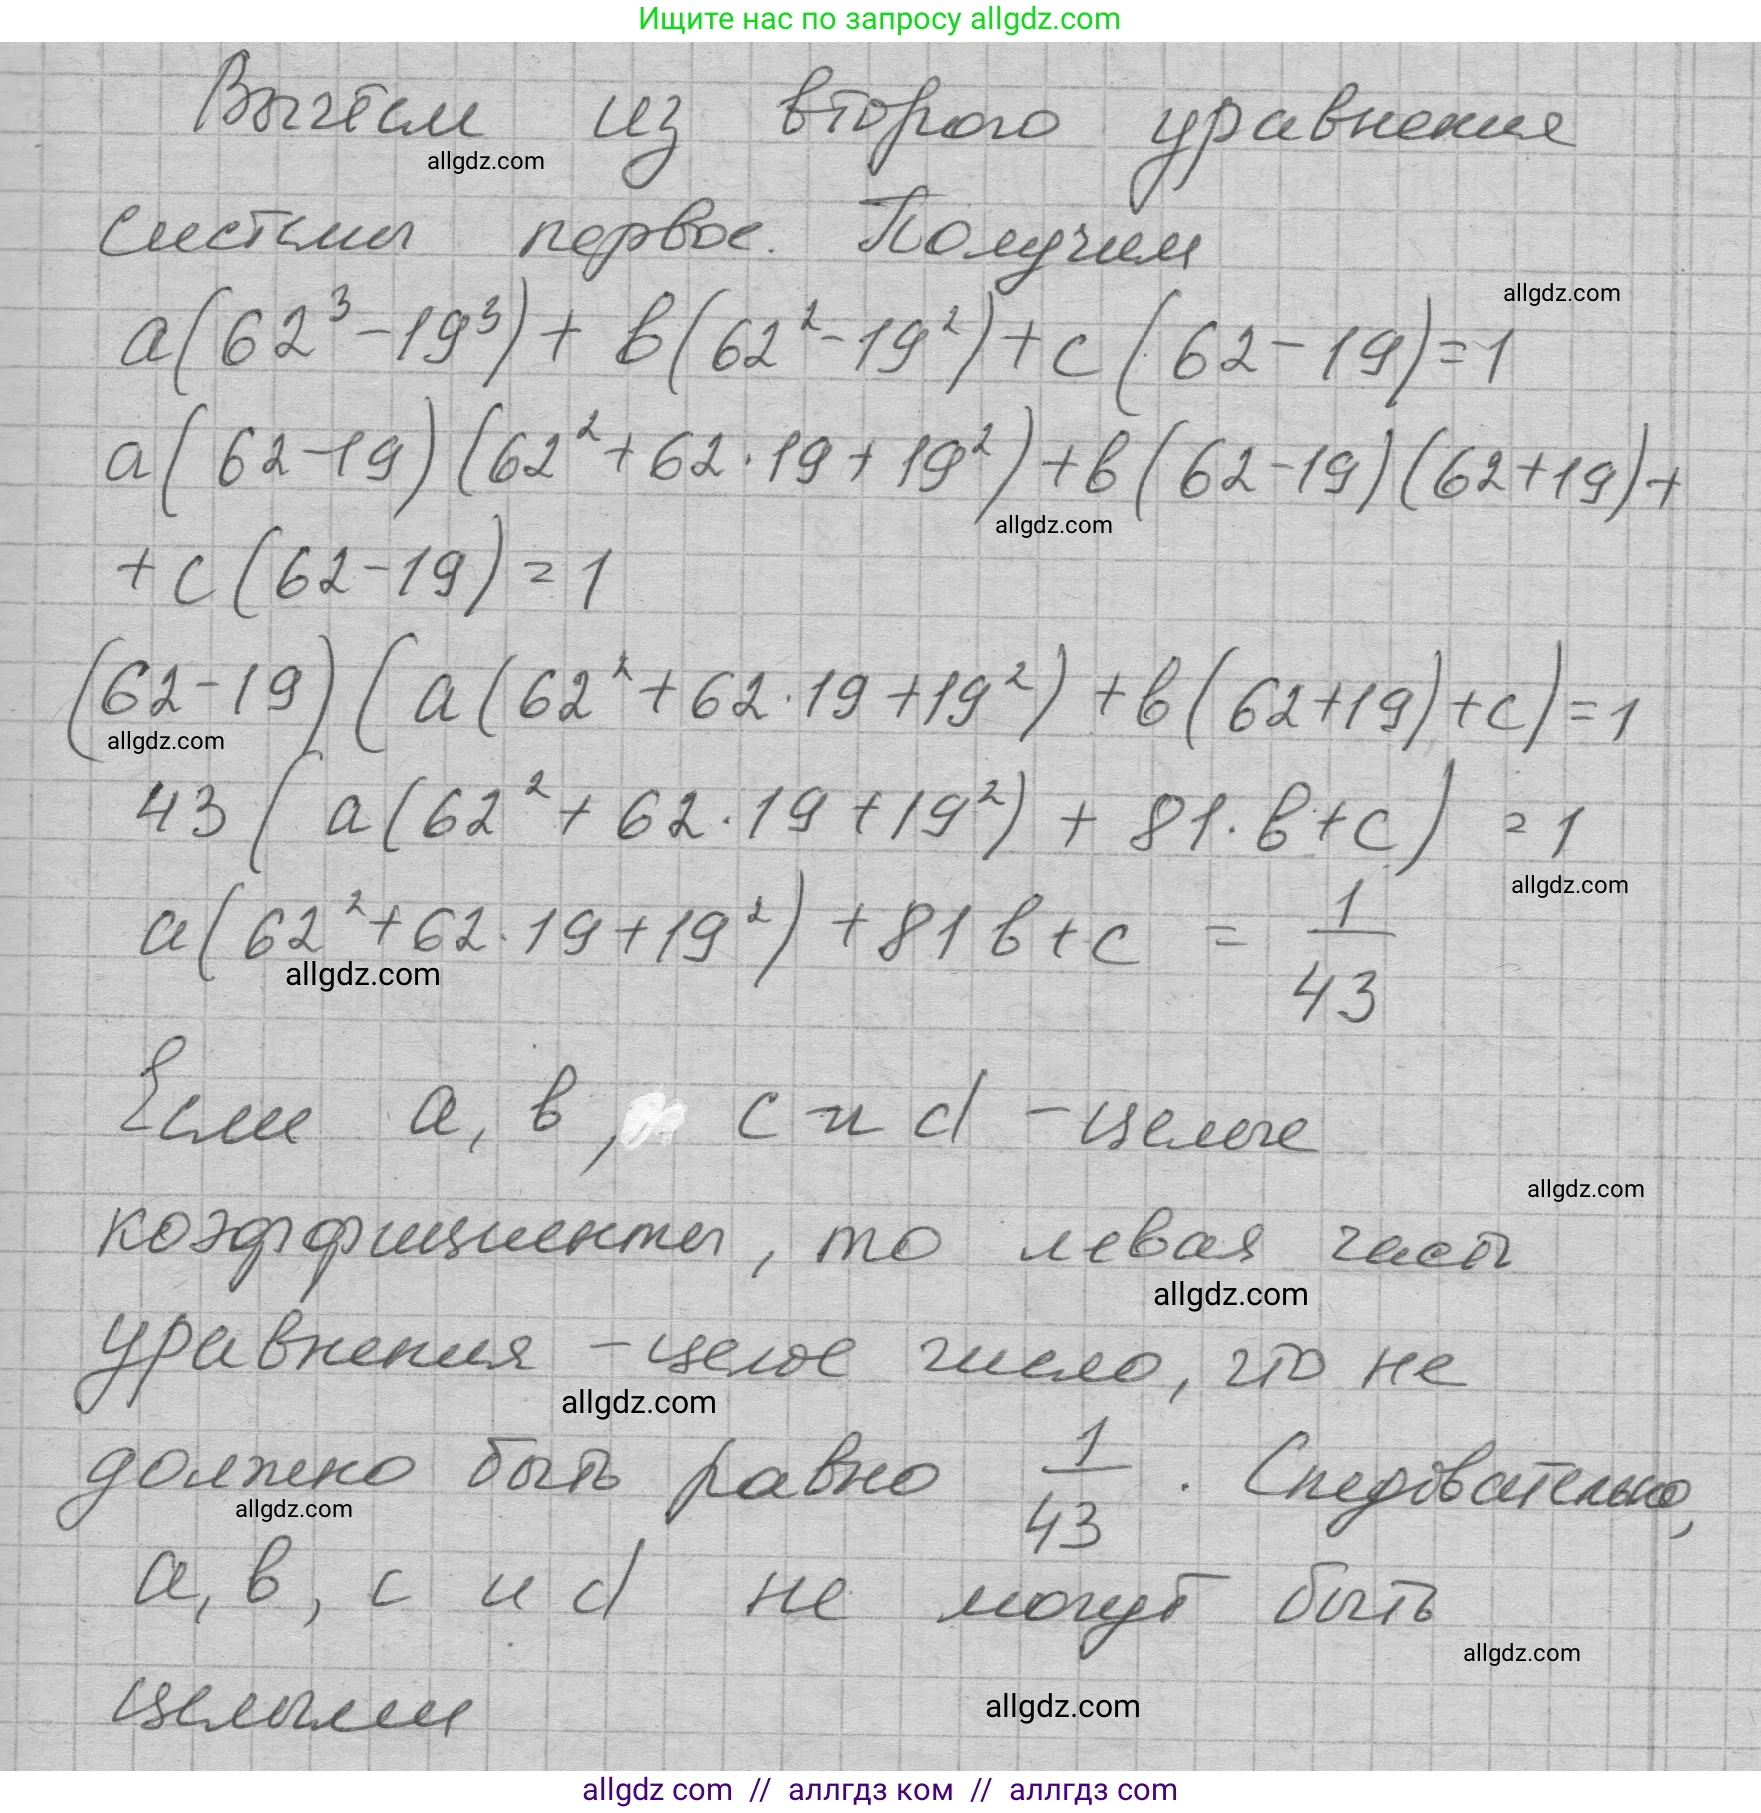 Ищите нас по запросу allgdz.com
Вычтем из второго уравнения
allgdz.com
системы первое. Получим
allgdz.com
a(62³-19³)+в(62²-19²)+c(62-19)=1
a(62-19)(62²+62·19+19²)+в(62-19)(62+19)+
allgdz.com
+c(62-19)=1
(62-19)(a(62²+62·19+19²)+в(62+19)+c)=1
allgdz.com
43(a(62²+62·19+19²)+81·в+c)=1
allgdz.com
a(62²+62·19+19²)+81в+c = 1/43
allgdz.com
Если a, в, c и d - целые
allgdz.com
коэффициенты, то левая часть
allgdz.com
уравнения - целое число, что не
allgdz.com
должно быть равно 1/43. Следовательно,
allgdz.com
a, в, c и d не могут быть
allgdz.com
целыми
allgdz.com
allgdz com // аллгдз ком // аллгдз com